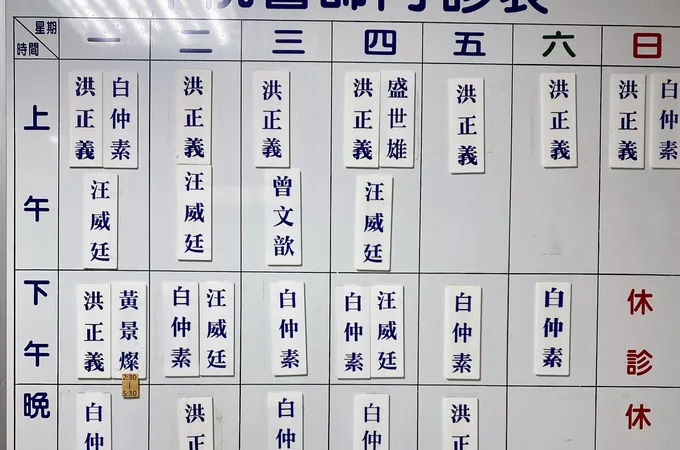 醫師門診表
星期 時間 一 二 三 四 五 六 日
上午
洪正義 白仲素 洪正義 洪正義 洪正義 盛世雄 洪正義 洪正義 洪正義 白仲素
汪威廷 汪威廷 曾文歆 汪威廷
下午
洪正義 黃景燦 白仲素 汪威廷 白仲素 白仲素 汪威廷 白仲素 白仲素 休診
2:30
|
5:30
晚
白仲 洪正 白仲 白仲 洪正 休